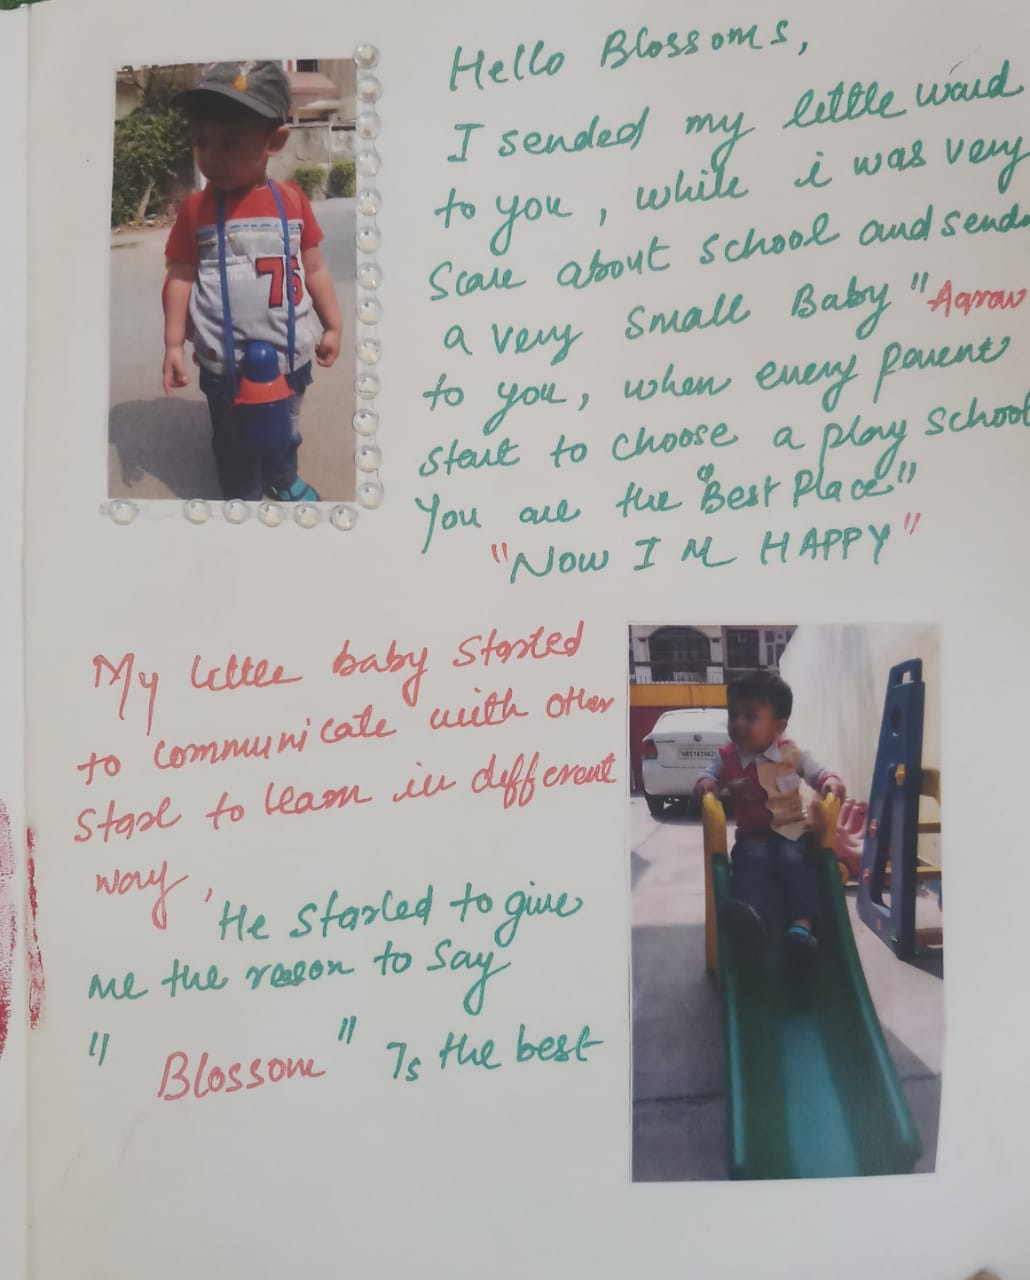 Hello Blossoms,
I sended my little ward
to you, while i was very
scare about school and sends
a very small Baby "Aarav
to you, when every parent
start to choose a play school
You are the "Best Place"
"NOW I M HAPPY"
75
My little baby started
to communicate with other
start to learn in different
way,
He started to give
me the reason to say
" Blossom" Is the best